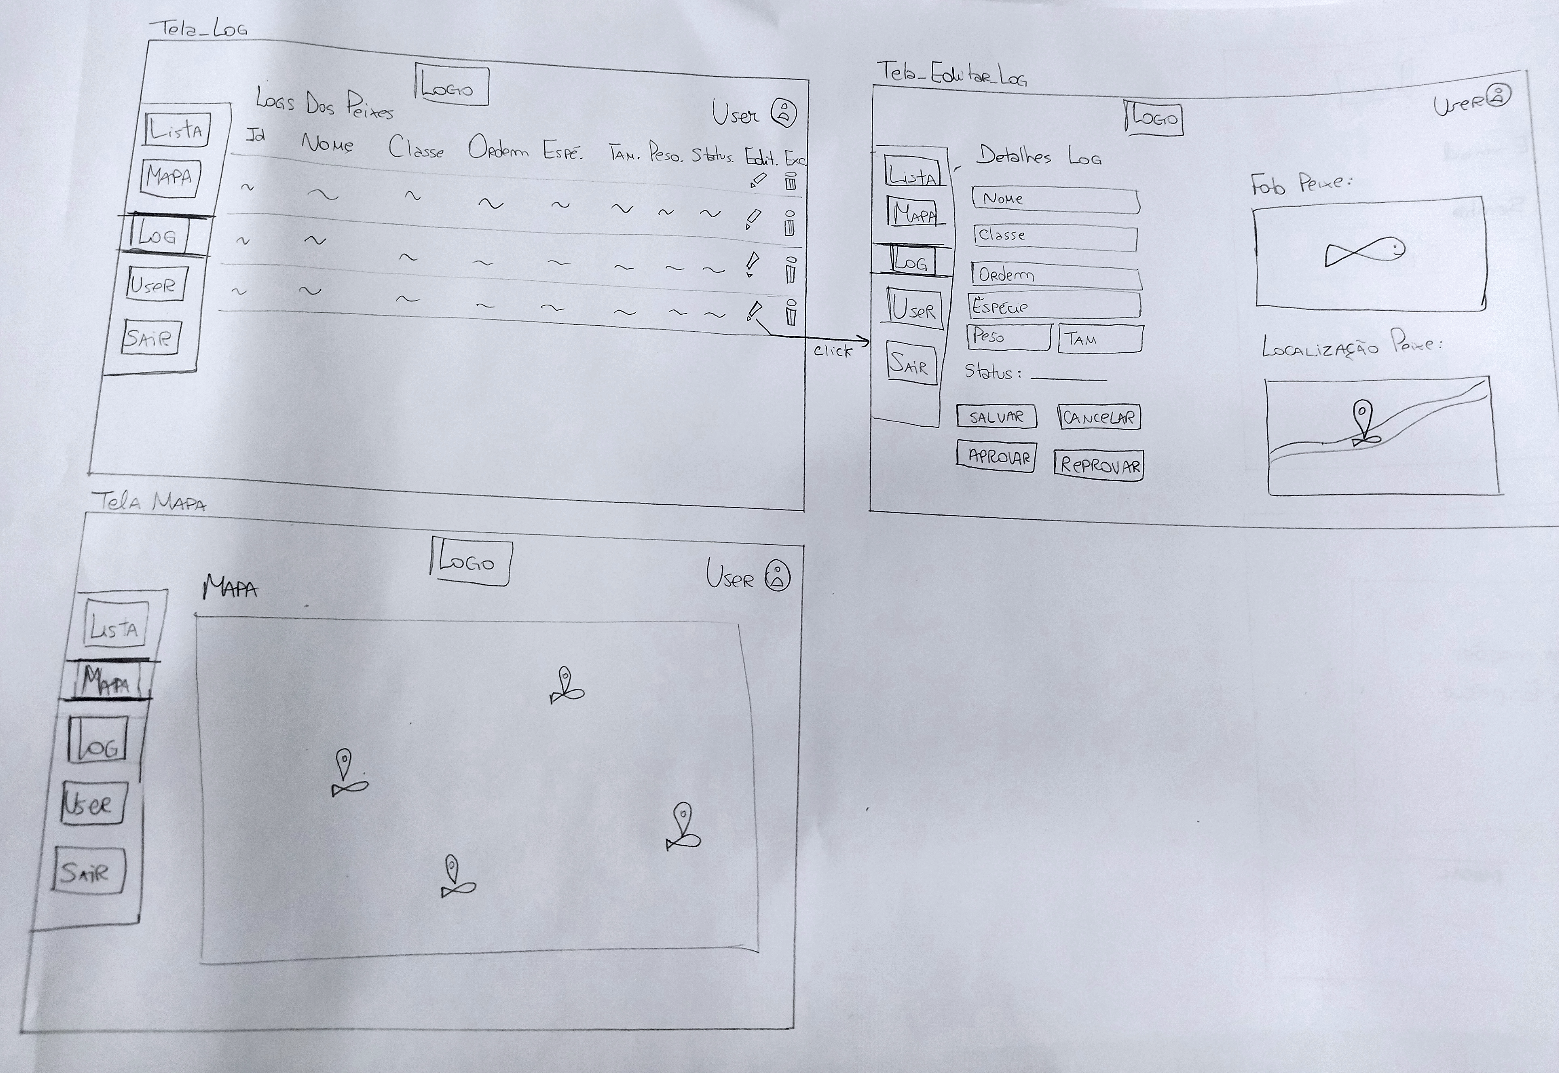 Tela_Log
LOGO
Logs Dos Peixes
User
Lista
MAPA
LOG
User
SAIR
Id Nome Classe Ordem Espé. TAM. Peso. Status. Edit. Exc
click
Tela_Editar_Log
LOGO
User
Lista
MAPA
LOG
User
SAIR
Detalhes Log
Nome
Classe
Ordem
Espécie
Peso TAM
Status:
SALVAR CANCELAR
APROVAR REPROVAR
Foto Peixe:
LOCALIZAÇÃO Peixe:
Tela MAPA
LOGO
User
MAPA
LISTA
MAPA
LOG
User
SAIR